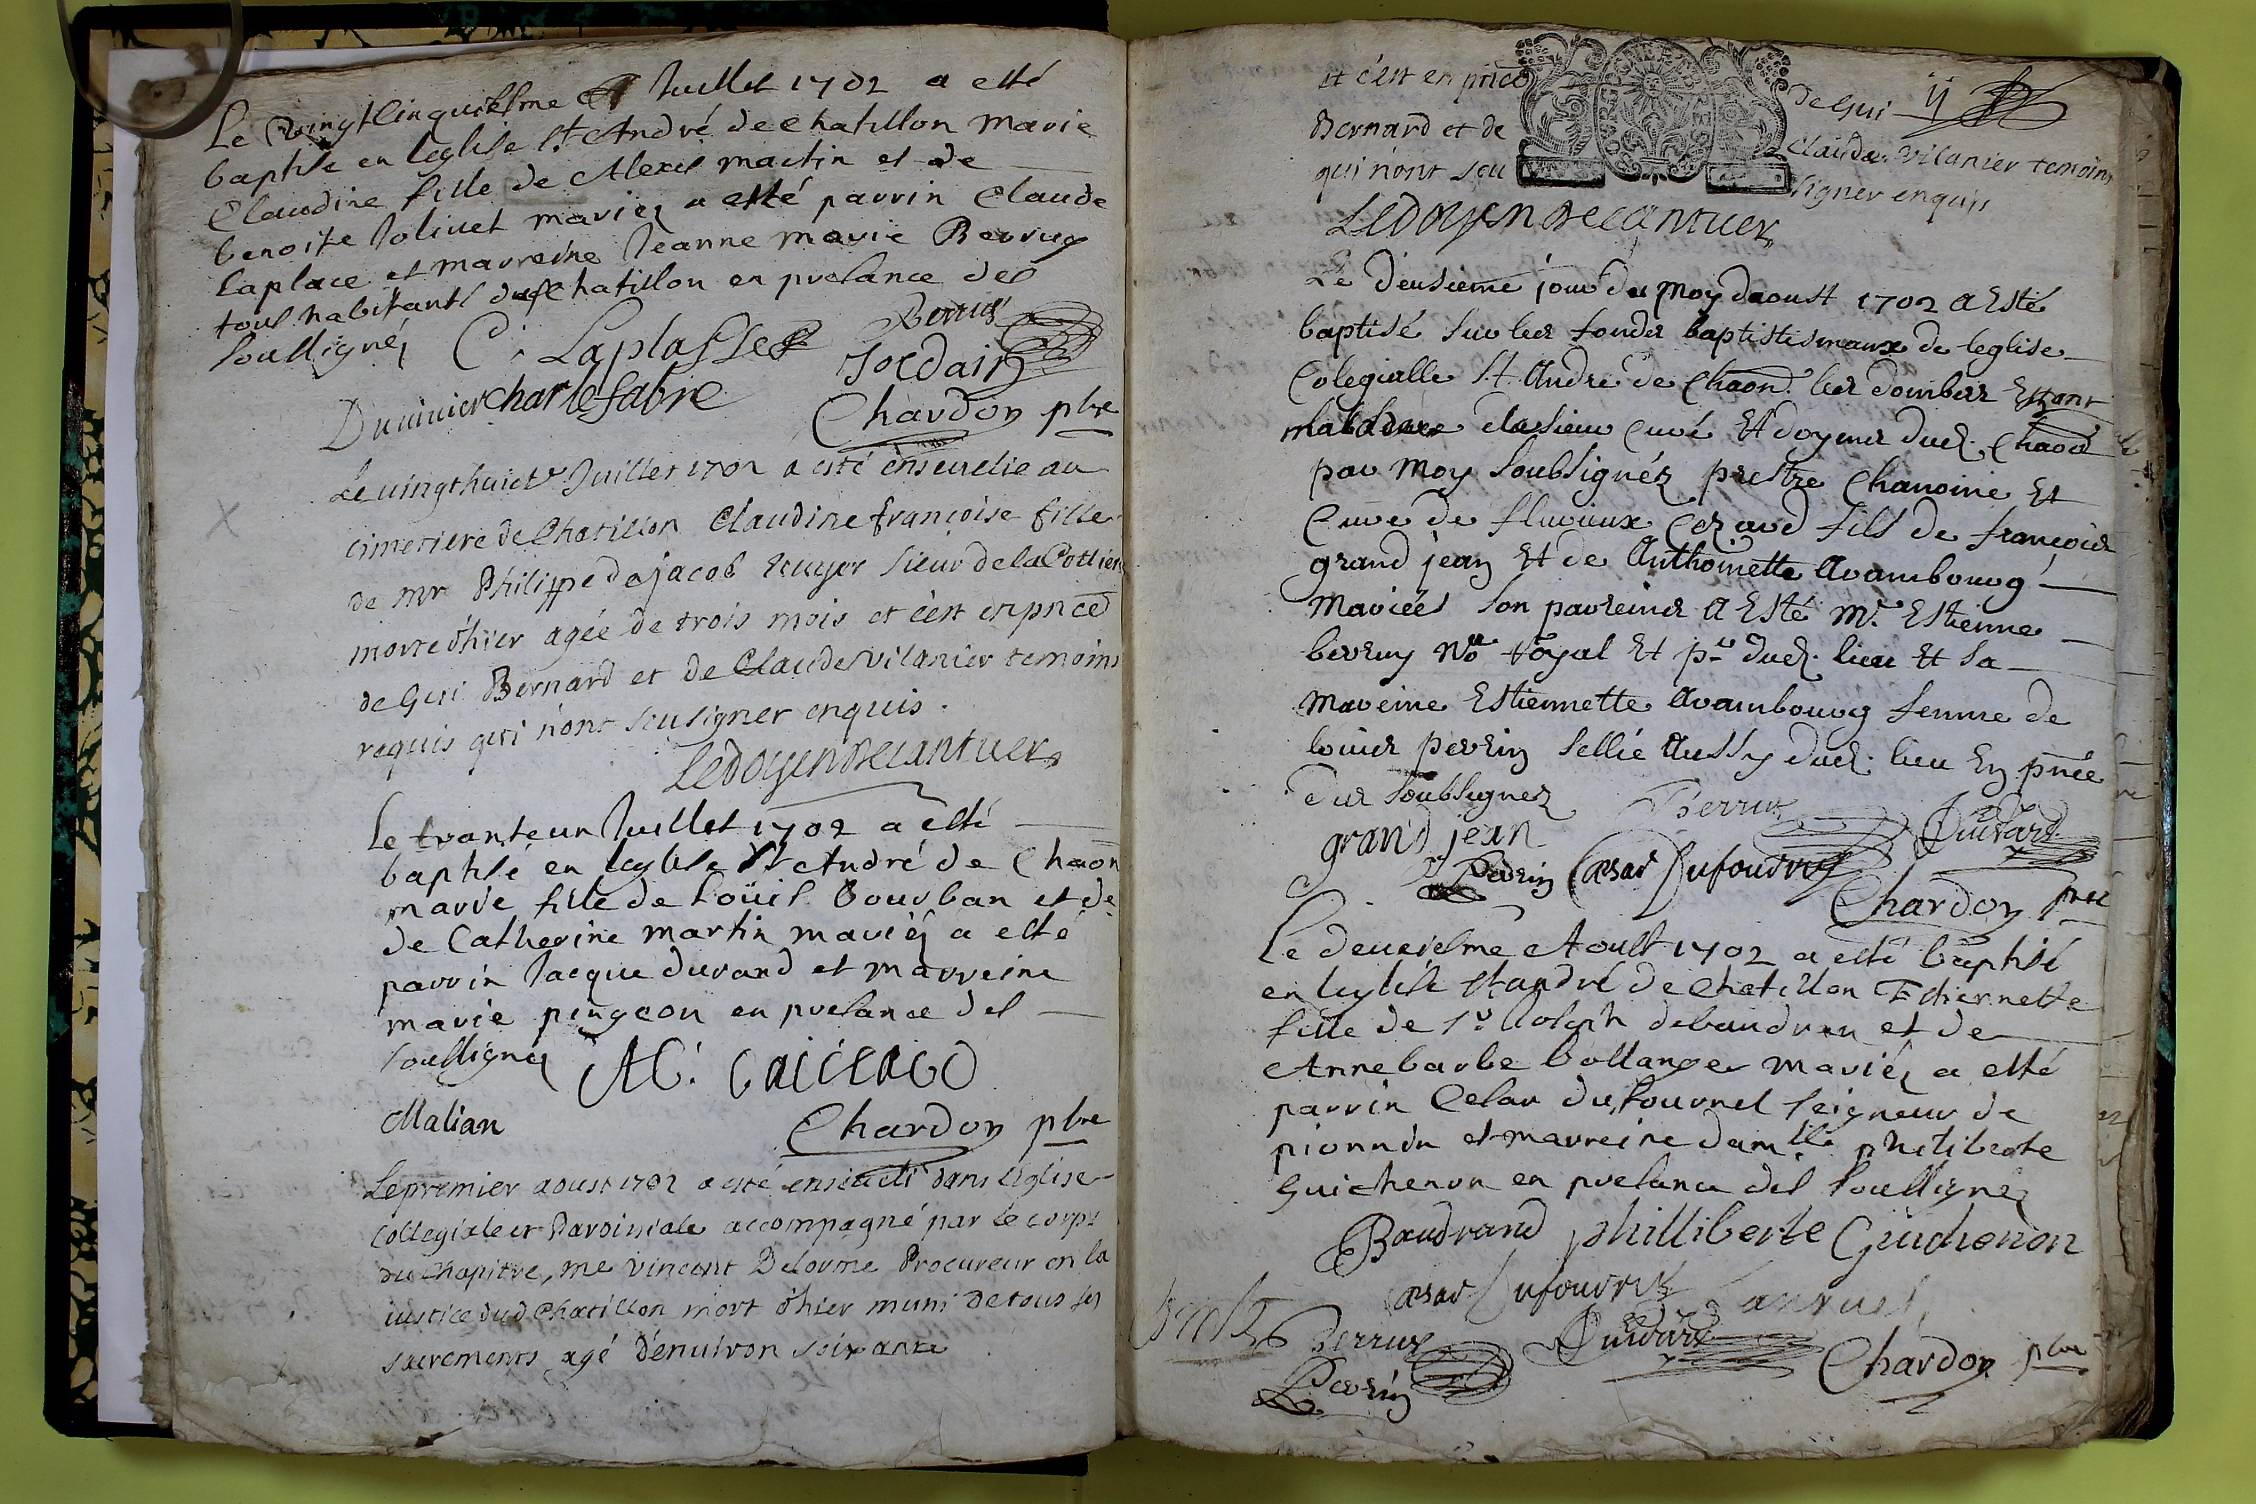 Le vingtcinquiesme Juillet 1702 a esté
baptise en leglise St André de chatillon marie
Claudine fille de Alexis martin et de
benoite Jolivet mariez a esté parrin Claude
Laplace et marreine Jeanne marie Berruy
tous habitants de chatillon en presance des
soussignéz C. Laplasse Berruÿ
Jocdain
Duvivier charle fabre
Chardon pbre
Le vingthuict Juillet 1702 a esté ensevelie au
cimetiere de Chatillon Claudine françoise fille
de mr Philippe dejacob Ecuyer sieur de la Cottiere
morte d'hier agée de trois mois et c'est en pnce
de Gui Bernard et de Claude vilanier temoins
requis qui n'ont seu signer enquis.
Ledoyen Decantuer
Le tranteun Juillet 1702 a esté
baptisé en leglise St André de Chaon
marie fille de Loüis Bourban et de
de Catherine martin mariéz a esté
parrin Jacque durand et marreine
marie pingeon en presance des
soussignéz
Malian
Chardon pbre
Le premier aoust 1702 a esté enseveli dans l'Eglise
Collegiale et Paroissiale accompagné par le corps
du Chapitre, me vincent Delorme Procureur en la
iustice dud Chatillon mort d'hier muni de tous ses
sacrements agé d'environ soixante
et c'est en pnce de Gui
Bernard et de Claude vilanier temoins
qui n'ont seu signer enquis
Ledoyen Decantuer
Le deusieme jour du moy daoust 1702 a Esté
baptisé sur les fonds baptistismaux de leglise
Colegialle St André de Chaon les dombes Estant
malade sieur curé Et doyen dud. Chaon
par moy soubsignéz prestre Chanoine Et
Cure de fluvieux Cezard fils de francois
grand jean Et de Anthoinette Avambourg
Mariées son parrein a Esté Mr. Estienne
berruy Nre royal Et pr dud. lieu Et sa
Mareine Estiennette Avambourg femme de
louis perrin sellié aussy dud. lieu En pnce
des soubsignez Berruÿ
grand jean
Perrin Cesar Dufourny
Chardon pbre
Le deuxiesme Aoust 1702 a esté baptisé
en leglise St andré de chatillon Etiernette
fille de Sr Joseph debaudran et de
Anne barbe bollanger mariéz a esté
parrin Cesar dufournel seigneur de
pionnin et marreine damlle philiberte
Guichenon en presance des soussignez
Baudrand philliberte Guichenon
Cesar Dufourny
Berruÿ
Chardon pbre
Perrin